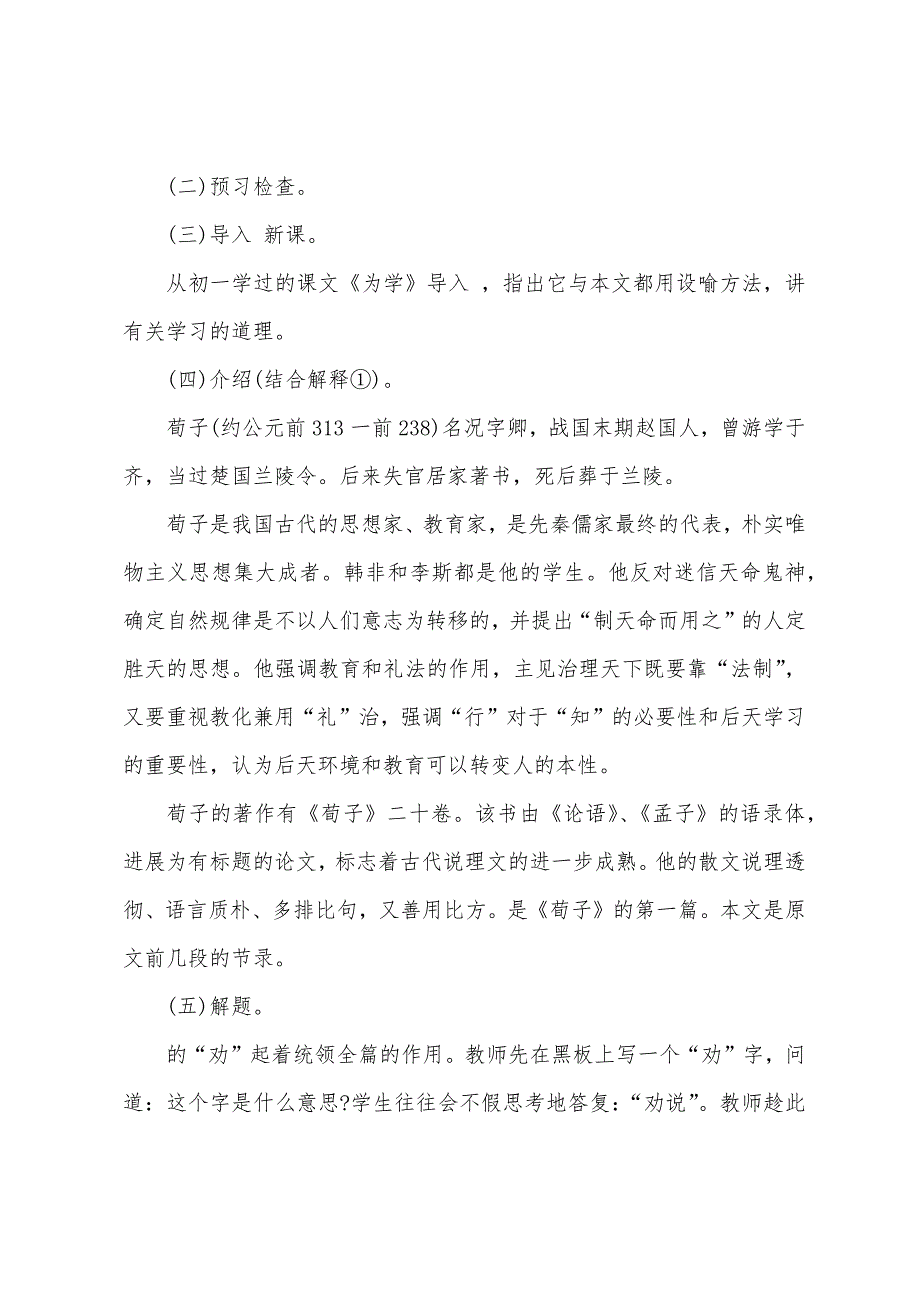 (二)预习检查。
(三)导入 新课。
从初一学过的课文《为学》导入 ，指出它与本文都用设喻方法，讲
有关学习的道理。
(四)介绍(结合解释①)。
荀子(约公元前 313 一前 238)名况字卿，战国末期赵国人，曾游学于
齐，当过楚国兰陵令。后来失官居家著书，死后葬于兰陵。
荀子是我国古代的思想家、教育家，是先秦儒家最终的代表，朴实唯
物主义思想集大成者。韩非和李斯都是他的学生。他反对迷信天命鬼神，
确定自然规律是不以人们意志为转移的，并提出“制天命而用之”的人定
胜天的思想。他强调教育和礼法的作用，主见治理天下既要靠“法制”，
又要重视教化兼用“礼”治，强调“行”对于“知”的必要性和后天学习
的重要性，认为后天环境和教育可以转变人的本性。
荀子的著作有《荀子》二十卷。该书由《论语》、《孟子》的语录体，
进展为有标题的论文，标志着古代说理文的进一步成熟。他的散文说理透
彻、语言质朴、多排比句，又善用比方。是《荀子》的第一篇。本文是原
文前几段的节录。
(五)解题。
的“劝”起着统领全篇的作用。教师先在黑板上写一个“劝”字，问
道：这个字是什么意思?学生往往会不假思考地答复：“劝说”。教师趁此